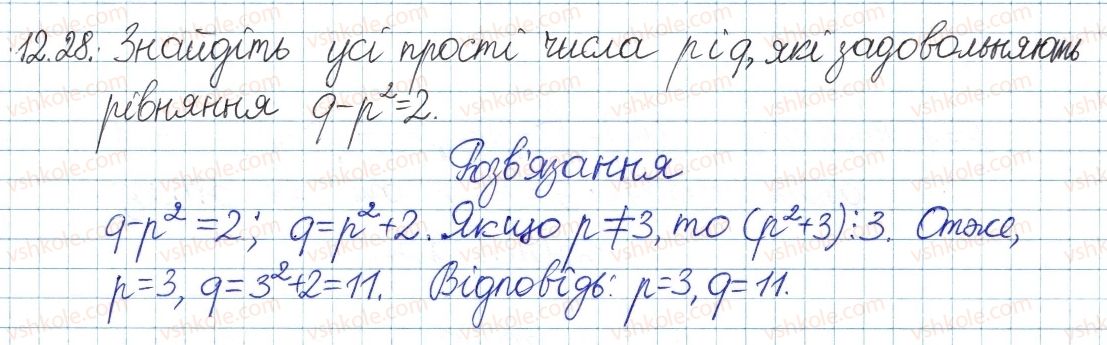 12.28. Знайдіть усі прості числа p і q, які задовольняють
рівняння q-p²=2.
Розв'язання
q-p²=2; q=p²+2. Якщо p≠3, то (p²+3)⋮3. Отже,
p=3, q=3²+2=11. Відповідь: p=3, q=11.